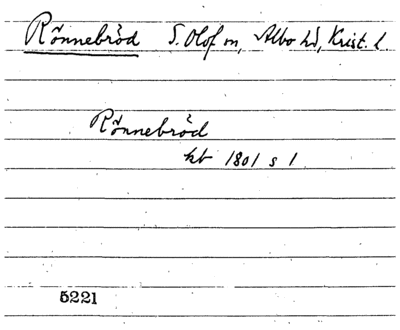 Rönnebröd S. Olof sn, Albo hd, Krist. l.
Rönnebröd
kb 1801 s 1
5221